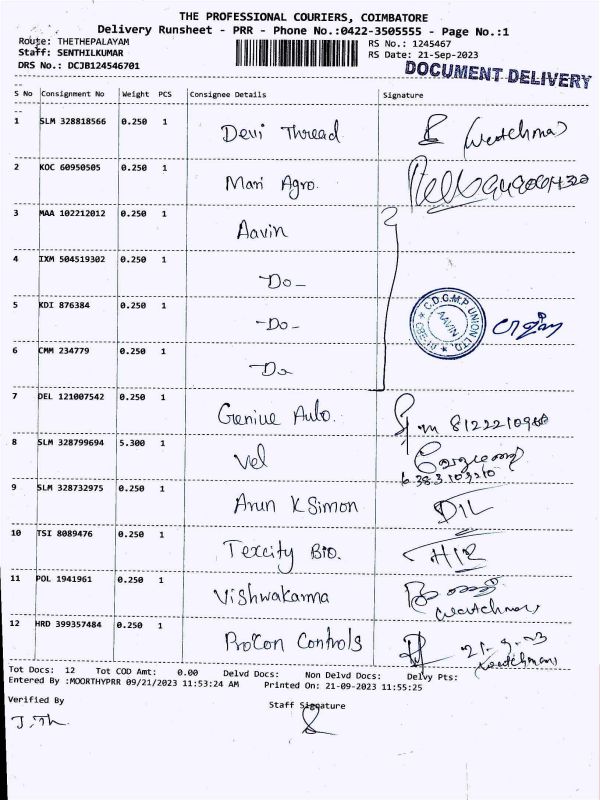 THE PROFESSIONAL COURIERS, COIMBATORE
Delivery Runsheet - PRR - Phone No.:0422-3505555 - Page No.:1
Route: THETHEPALAYAM RS No.: 1245467
Staff: SENTHILKUMAR RS Date: 21-Sep-2023
DRS No.: DCJB124546701 DOCUMENT DELIVERY
S No Consignment No Weight PCS Consignee Details Signature
1 SLM 328818566 0.250 1 Devi Thread (watchman)
2 KOC 60950505 0.250 1 Mari Agro.
3 MAA 102212012 0.250 1 Aavin
4 IXM 504519302 0.250 1 -Do-
5 KDI 876384 0.250 1 -Do-
C.D.C.M.P UNION LTD.
AAVIN
6 CMM 234779 0.250 1 -Do
7 DEL 121007542 0.250 1 Genius Auto.
8 SLM 328799694 5.300 1 Vel
9 SLM 328732975 0.250 1 Arun K Simon
10 TSI 8089476 0.250 1 Texcity Bio.
11 POL 1941961 0.250 1 Vishwakarma watchman
12 HRD 399357484 0.250 1 Procon Controls 21-9-23
watchman
Tot Docs: 12 Tot COD Amt: 0.00 Delvd Docs: Non Delvd Docs: Delvy Pts:
Entered By :MOORTHYPRR 09/21/2023 11:53:24 AM Printed On: 21-09-2023 11:55:25
Verified By Staff Signature
Jith